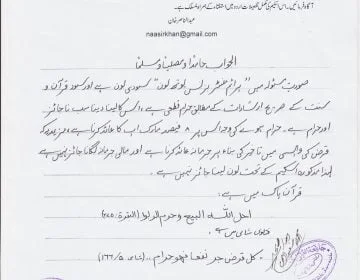 آگاہ فرمائیں۔ اس سکیم کی مکمل تفصیلات اردو میں استفتاء کے ہمراہ منسلک ہے۔
عبدالناصر خان
naasirkhan@gmail.com
الجواب حامداً ومصلیاً ومسلماً
صورت مسئولہ میں "پرائم منسٹر بزنس یوتھ لون" سودی لون ہے اور سود قرآن و
سنت کے صریح ارشادات کے مطابق حرام قطعی ہے، اس کا لینا دینا سب ناجائز
اور حرام ہے۔ حرام ہونے کی وجہ اس پر ۸ فیصد مارک اپ کا عائد کرنا ہے، مزید یہ کہ
قرض کی واپسی میں تاخیر کی بناء پر جرمانہ عائد کرنا ہے اور مالی جرمانہ لگانا جائز نہیں ہے
لہذا مذکورہ اسکیم کے تحت لون لینا جائز نہیں ہے۔
قرآن پاک میں ہے۔
احل اللہ البیع وحرم الربوا (البقرۃ:۲۷۵)
میں ہے
کل قرض جر نفعا فھو حرام۔۔ (شامی ۵/۱۶۶)